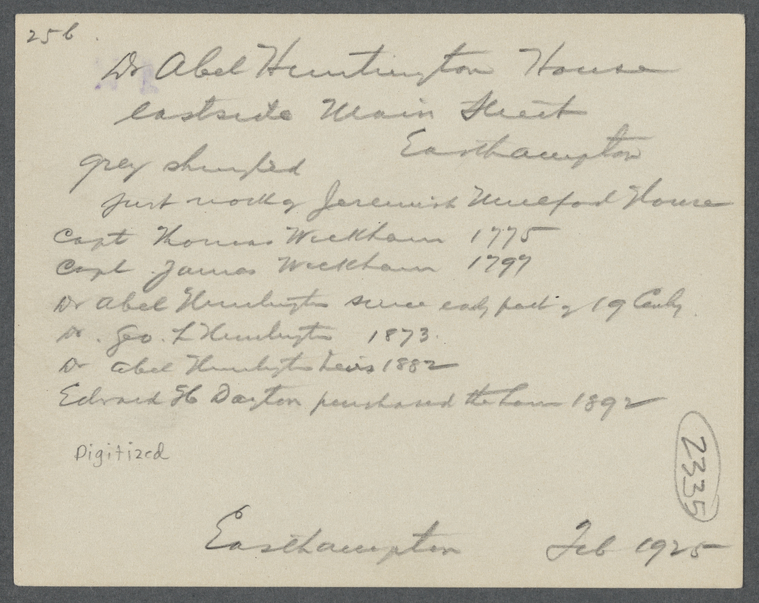 25b
Dr Abel Huntington House
eastside Main Street
Easthampton
grey shingled
just north of Jeremiah Mulford House
Capt Thomas Wickham 1775
Capt James Wickham 1797
Dr Abel Huntington since early part of 19 Cent'y
Dr. Geo. L Huntington 1873.
Dr Abel Huntington heirs 1882
Edward H Dayton purchased the home 1892
Digitized
2335
Easthampton Feb 1925